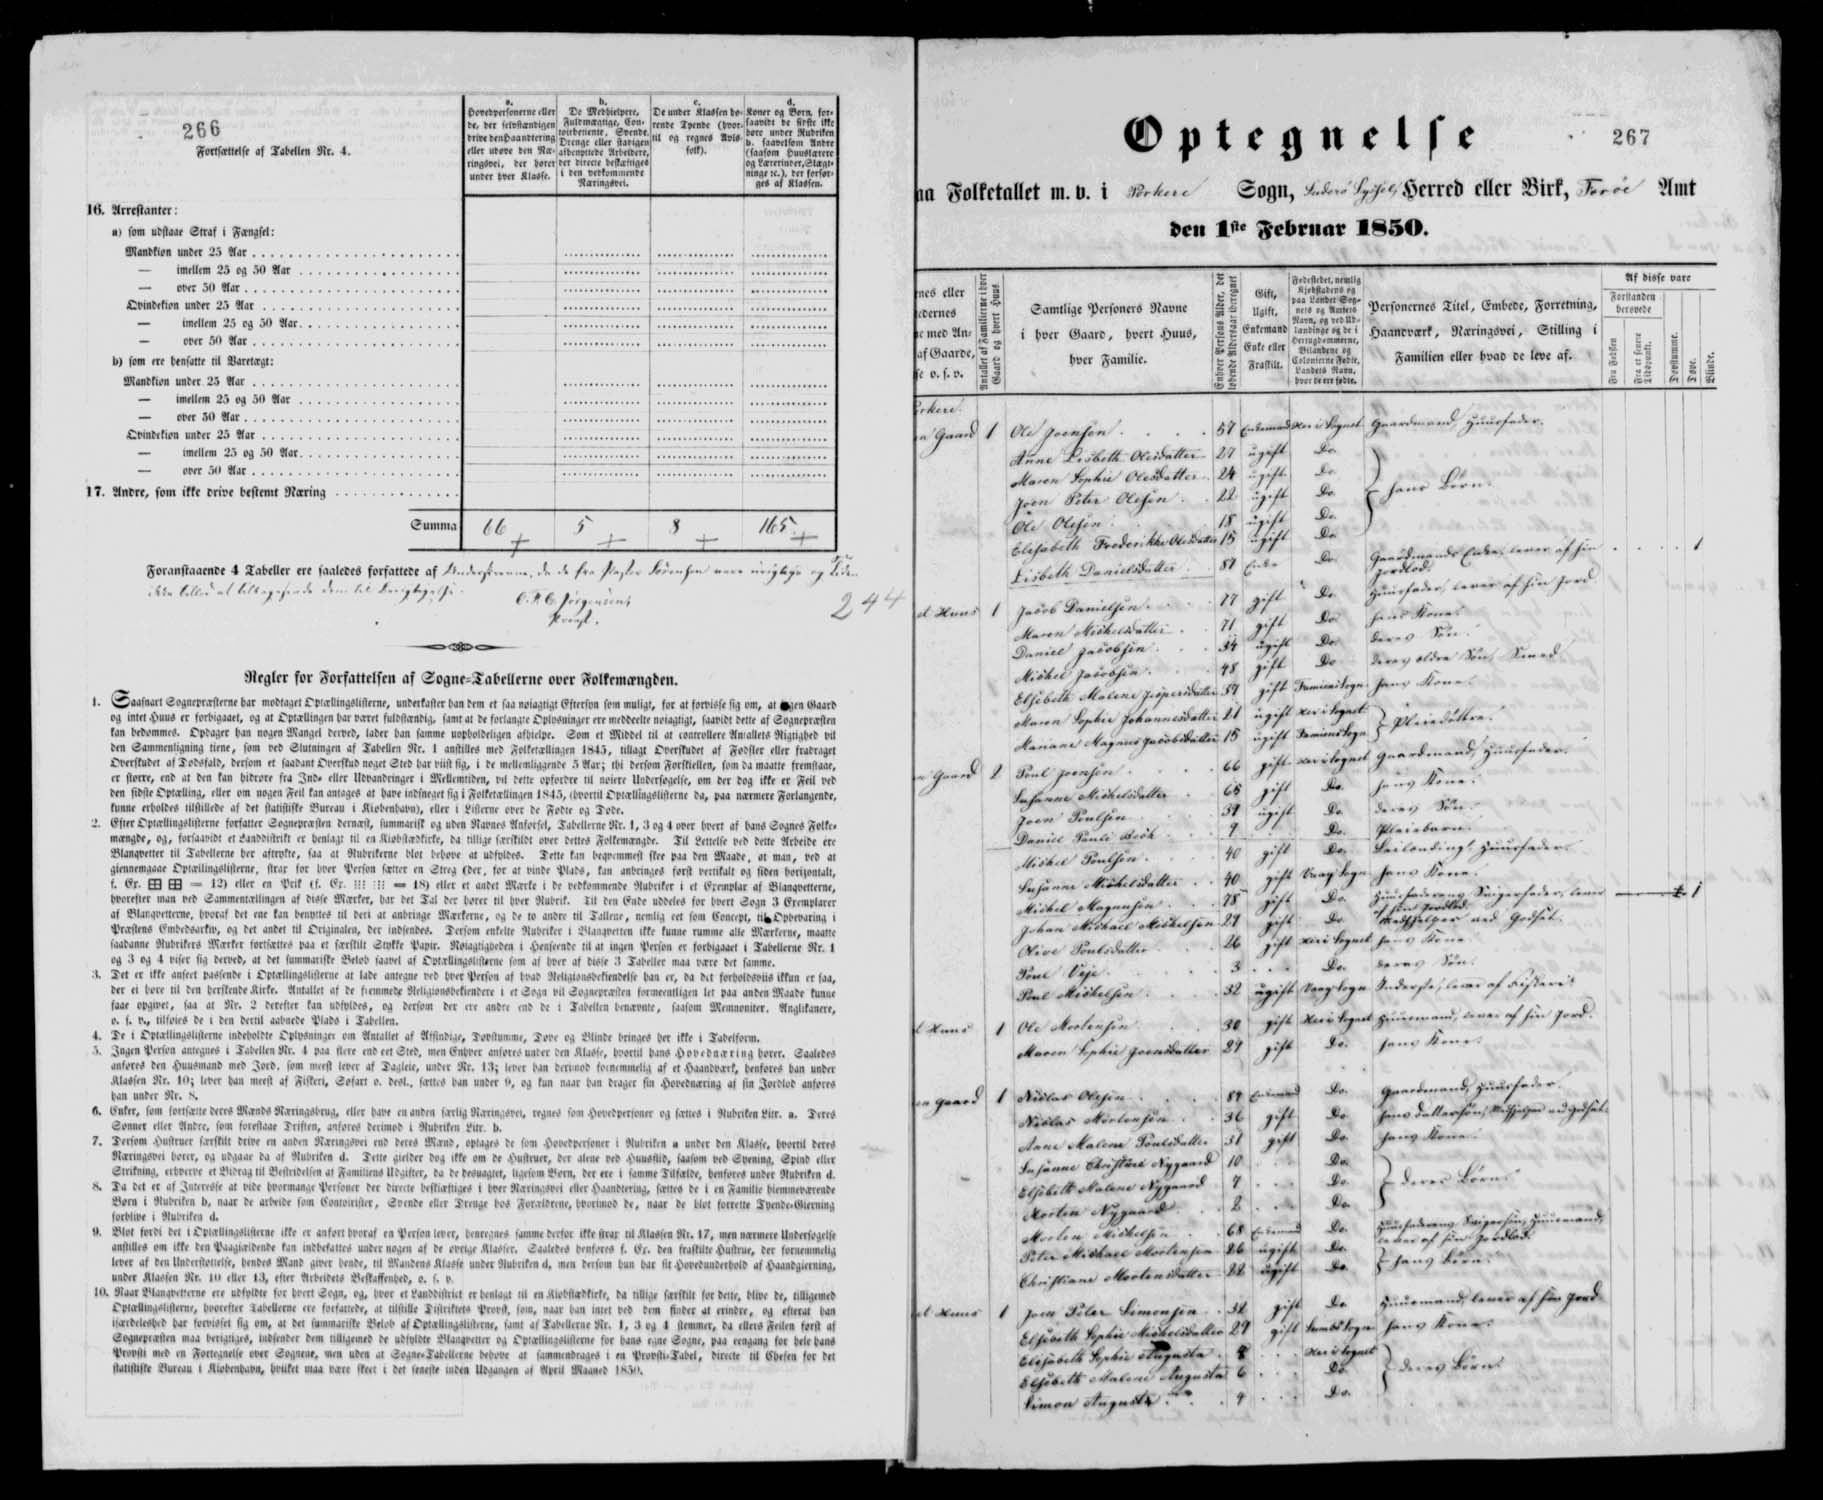 266
Fortsættelse af Tabellen Nr. 4.
a.
Hovedpersonerne eller
de, der selvstændigen
drive den Haandtering
eller udøve den Næ-
ringsvei, der hører
under hver Klasse.
b.
De Medhjelpere,
Fuldmægtige, Con-
toirbetjente, Svende,
Drenge eller stadigen
afbenyttede Arbeidere,
der directe beskæftiges
i den vedkommende
Næringsvei.
c.
De under Klassen hø-
rende Tyende (hvor-
til og regnes Avls-
folk).
d.
Koner og Børn, for-
saavidt de sidste ikke
høre under Rubriken
b. saavelsom Andre
(saasom Huuslærere
og Lærerinder, Slægt-
ninge ec.), der forsør-
ges af Klassen.
16. Arrestanter:
a) som udstaae Straf i Fængsel:
Mandkiøn under 25 Aar
— imellem 25 og 50 Aar
— over 50 Aar
Qvindekiøn under 25 Aar
— imellem 25 og 50 Aar
— over 50 Aar
b) som ere hensatte til Varetægt:
Mandkiøn under 25 Aar
— imellem 25 og 50 Aar
— over 50 Aar
Qvindekiøn under 25 Aar
— imellem 25 og 50 Aar
— over 50 Aar
17. Andre, som ikke drive bestemt Næring
Summa 66 5 8 165
Foranstaaende 4 Tabeller ere saaledes forfattede af Undertegnede, da de fra Pastor Sørensen vare urigtige og Tiden
ikke tillod at tilbagesende dem til Berigtigelse.
C. F. C. Jørgensen,
Provst.
244
Regler for Forfattelsen af Sogne-Tabellerne over Folkemængden.
1. Saasnart Sognepræsterne har modtaget Optællingslisterne, underkaster han dem et saa nøiagtigt Eftersyn som muligt, for at forvisse sig om, at ingen Gaard
og intet Huus er forbigaaet, og at Optællingen har været fuldstændig, samt at de forlangte Oplysninger ere meddeelte nøiagtigt, saavidt dette af Sognepræsten
kan bedømmes. Opdager han nogen Mangel derved, lader han samme uopholdeligen afhielpe. Som et Middel til at controllere Antallets Rigtighed vil
den Sammenligning tiene, som ved Slutningen af Tabellen Nr. 1 anstilles med Folketællingen 1845, tillagt Overskudet af Fødsler eller fradraget
Overskudet af Dødsfald, dersom et saadant Overskud noget Sted har viist sig, i de mellemliggende 5 Aar; thi dersom Forskiellen, som da maatte fremstaae,
er større, end at den kan hidrøre fra Ind- eller Udvandringer i Mellemtiden, vil dette opfordre til nøiere Undersøgelse, om der dog ikke er Feil ved
den sidste Optælling, eller om nogen Feil kan antages at have indsneget sig i Folketællingen 1845, (hvortil Optællingslisterne da, paa nærmere Forlangende,
kunne erholdes tilstillede af det statistiske Bureau i Kiøbenhavn), eller i Listerne over de Fødte og Døde.
2. Efter Optællingslisterne forfatter Sognepræsten dernæst, summarisk og uden Navnes Anførsel, Tabellerne Nr. 1, 3 og 4 over hvert af hans Sognes Folke-
mængde, og, forsaavidt et Landdistrikt er henlagt til en Kiøbstædkirke, da tillige særskildt over dettes Folkemængde. Til Lettelse ved dette Arbeide ere
Blanqvetter til Tabellerne her aftrykte, saa at Rubrikerne blot behøve at udfyldes. Dette kan beqvemmest skee paa den Maade, at man, ved at
giennemgaae Optællingslisterne, strax for hver Person sætter en Streg (der, for at vinde Plads, kan anbringes først vertikalt og siden horizontalt,
f. Ex. = 12) eller en Prik (f. Ex. = 18) eller et andet Mærke i de vedkommende Rubriker i et Exemplar af Blanqvetterne,
hvorefter man ved Sammentællingen af disse Mærker, har det Tal der hører til hver Rubrik. Til den Ende uddeles for hvert Sogn 3 Exemplarer
af Blanqvetterne, hvoraf det ene kan benyttes til deri at anbringe Mærkerne, og de to andre til Tallene, nemlig eet som Concept, til Opbevaring i
Præstens Embedsarkiv, og det andet til Originalen, der indsendes. Dersom enkelte Rubriker i Blanqvetten ikke kunne rumme alle Mærkerne, maatte
saadanne Rubrikers Mærker fortsættes paa et særskilt Stykke Papir. Nøiagtigheden i Henseende til at ingen Person er forbigaaet i Tabellerne Nr. 1
og 3 og 4 viser sig derved, at det summariske Beløb saavel af Optællingslisterne som af hver af disse 3 Tabeller maa være det samme.
3. Det er ikke anseet passende i Optællingslisterne at lade antegne ved hver Person af hvad Religionsbekiendelse han er, da det forholdsviis ikkun er faa,
der ei høre til den herskende Kirke. Antallet af de fremmede Religionsbekiendere i et Sogn vil Sognepræsten formeentligen let paa anden Maade kunne
faae opgivet, saa at Nr. 2 derefter kan udfyldes, og dersom der ere andre end de i Tabellen benævnte, saasom Mennoniter, Anglikanere,
o. s. v., tilføies de i den dertil aabnede Plads i Tabellen.
4. De i Optællingslisterne indeholdte Oplysninger om Antallet af Afsindige, Døvstumme, Døve og Blinde bringes her ikke i Tabelform.
5. Ingen Person antegnes i Tabellen Nr. 4 paa flere end eet Sted, men Enhver anføres under den Klasse, hvortil hans Hovednæring hører. Saaledes
anføres den Huusmand med Jord, som meest lever af Dagleie, under Nr. 13; lever han derimod fornemmelig af et Haandværk, henføres han under
Klassen Nr. 10; lever han meest af Fiskeri, Søfart o. desl., sættes han under 9, og kun naar han drager sin Hovednæring af sin Jordlod anføres
han under Nr. 8.
6. Enker, som fortsætte deres Mænds Næringsbrug, eller have en anden særlig Næringsvei, regnes som Hovedpersoner og sættes i Rubriken Litr. a. Deres
Sønner eller Andre, som forestaae Driften, anføres derimod i Rubriken Litr. b.
7. Dersom Hustruer særskilt drive en anden Næringsvei end deres Mænd, optages de som Hovedpersoner i Rubriken a under den Klasse, hvortil deres
Næringsvei hører, og udgaae da af Rubriken d. Dette gielder dog ikke om de Hustruer, der alene ved Huusflid, saasom ved Syening, Spind eller
Strikning, erhverve et Bidrag til Bestridelsen af Familiens Udgifter, da de desuagtet, ligesom Børn, der ere i samme Tilfælde, henføres under Rubriken d.
8. Da det er af Interesse at vide hvormange Personer der directe beskiæftiges i hver Næringsvei eller Haandtering, sættes de i en Familie hiemmeværende
Børn i Rubriken b, naar de arbeide som Contoirister, Svende eller Drenge hos Forældrene, hvorimod de, naar de blot forrette Tyende-Gierning
forblive i Rubriken d.
9. Blot fordi det i Optællingslisterne ikke er anført hvoraf en Person lever, henregnes samme derfor ikke strax til Klassen Nr. 17, men nærmere Undersøgelse
anstilles om ikke den Paagieldende kan indbefattes under nogen af de øvrige Klasser. Saaledes henføres f. Ex. den fraskilte Hustrue, der fornemmelig
lever af den Understøttelse, hendes Mand giver hende, til Mandens Klasse under Rubriken d, men dersom hun har sit Hovedunderhold af Haandgierning,
under Klassen Nr. 10 eller 13, efter Arbeidets Beskaffenhed, o. s. v.
10. Naar Blanqvetterne ere udfyldte for hvert Sogn, og, hvor et Landdistrict er henlagt til en Kiøbstædkirke, da tillige særskilt for dette, blive de, tilligemed
Optællingslisterne, hvorefter Tabellerne ere forfattede, at tilstille Distriktets Provst, som, naar han intet ved dem finder at erindre, og efterat han
isærdeleshed har forvisset sig om, at det summariske Beløb af Optællingslisterne, samt af Tabellerne Nr. 1, 3 og 4 stemmer, da ellers Feilen først af
Sognepræsten maa berigtiges, indsender dem tilligemed de udfyldte Blanqvetter og Optællingslisterne for hans egne Sogne, paa eengang for hele hans
Provsti med en Fortegnelse over Sognene, men uden at Sogne-Tabellerne behøve at sammendrages i en Provsti-Tabel, directe til Chefen for det
statistiske Bureau i Kiøbenhavn, hvilket maa være skeet i det seneste inden Udgangen af April Maaned 1850.
Optegnelse
267
aa Folketallet m. v. i Porkere Sogn, Suderø Syssels Herred eller Birk, Færøe Amt
den 1ste Februar 1850.
rnes eller
edernes
ne med An-
af Gaarde,
se o. s. v.
Antallet af Familierne i hver
Gaard og hvert Huus.
Samtlige Personers Navne
i hver Gaard, hvert Huus,
hver Familie.
Enhver Persons Alder, det
løbende Aldersaar iberegnet
Gift,
Ugift,
Enkemand
Enke eller
Fraskilt.
Fødestedet, nemlig
Kjøbstadens og
paa Landet Sog-
nets og Amtets
Navn, og ved Ud-
landinge og de i
Hertugdømmerne,
Bilandene og
Colonierne Fødte,
Landets Navn,
hvor de ere fødte.
Personernes Titel, Embede, Forretning,
Haandværk, Næringsvei, Stilling i
Familien eller hvad de leve af.
Af disse vare
Forstanden
berøvede
Fra Fødslen
Fra et senere
Tidspunkt.
Døvstumme.
Døve.
Blinde.
orkere.
n Gaard 1 Ole Joensen 57 Enkemand Her i Sognet Gaardmand, Huusfader.
Anne Lisbeth Olesdatter 27 ugift Do.
Maren Sophie Olesdatter 24 ugift Do. } hans Børn.
Joen Peter Olesen 22 ugift Do.
Ole Olesen 18 ugift Do.
Elisabeth Frederikke Olesdatter 15 ugift Do.
Lisbeth Danielsdatter 81 Enke Do. Gaardmands Enke, lever af sin Jordlod. 1
et Huus 1 Jacob Danielsen 77 gift Do. Huusfader, lever af sin Jord.
Maren Michelsdatter 71 gift Do. hans Kone.
Daniel Jacobsen 34 ugift Do. deres Søn.
Michel Jacobsen 48 gift Do. deres ældre Søn, Smed
Elsebeth Malene Jespersdatter 57 gift Famiens Sogn hans Kone.
Maren Sophie Johannesdatter 21 ugift Her i Sognet } Pleiedøttre.
Mariane Magnus Jacobsdatter 15 ugift Famiens Sogn
n Gaard 2 Poul Joensen 66 gift Her i Sognet Gaardmand, Huusfader.
Susanne Michelsdatter 65 gift Do. hans Kone.
Joen Poulsen 39 ugift Do. deres Søn.
Daniel Pauli 9 Do. Pleiebarn.
Michel Poulsen 40 gift Do. Huusfader.
Susanne Michelsdatter 40 gift Vaag Sogn hans Kone.
Michel Magnusen 78 gift Do. Huusfaderens Svigerfader, lever af sin Jordlod. 1
Johan Michael Michelsen 29 gift Do. Medhjelper ved Godset.
Olive Poulsdatter 26 gift Her i Sognet hans Kone
Poul Veje 3 Do. deres Søn.
Poul Michelsen 32 ugift Vaag Sogn Inderste, lever af Fiskeri.
t Huus 1 Ole Mortensen 30 gift Her i Sognet Huusmand, lever af sin Jord.
Maren Sophie Joensdatter 29 gift Do. hans Kone.
en Gaard 1 Niclas Olesen 84 Enkemand Do. Gaardmand, Huusfader.
Niclas Mortensen 36 gift Do. hans Dattersøn, Medhjelper ved Godset.
Anne Malene Poulsdatter 31 gift Do. hans Kone.
Susanne Christine Nygaard 10 Do.
Elsebeth Malene Nygaard 7 Do. } deres Børn.
Morten Nygaard 2 Do.
Morten Michelsen 68 Enkemand Do. Huusfaderens Svigersøn, Huusmand, lever af sin Jordlod.
Peter Michael Mortensen 26 ugift Do. } hans Børn.
Christiane Mortensdatter 22 ugift Do.
et Huus 1 Joen Peter Simonsen 32 gift Do. Huusmand, lever af sin Jord.
Elsebeth Sophie Michelsdatter 29 gift Sumbø Sogn hans Kone.
Elisabeth Sophie Augusta 8 Her i Sognet
Elsebeth Malene Augusta 6 Do. } deres Børn.
Simon Augusta 4 Do.